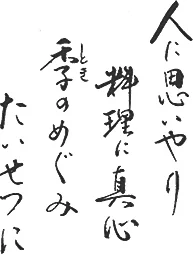 人に思いやり
料理に真心
季のめぐみ
とき
たいせつに